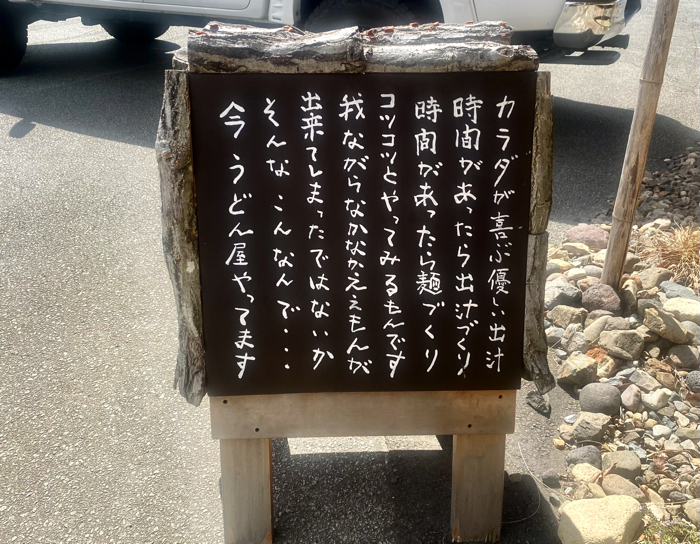 カラダが喜ぶ優しい出汁
時間があったら出汁づくり！
時間があったら麺づくり
コツコツとやってみるもんです
我ながらなかなかええもんが
出来てしまったではないか
そんなこんなんで・・・
今うどん屋やってます